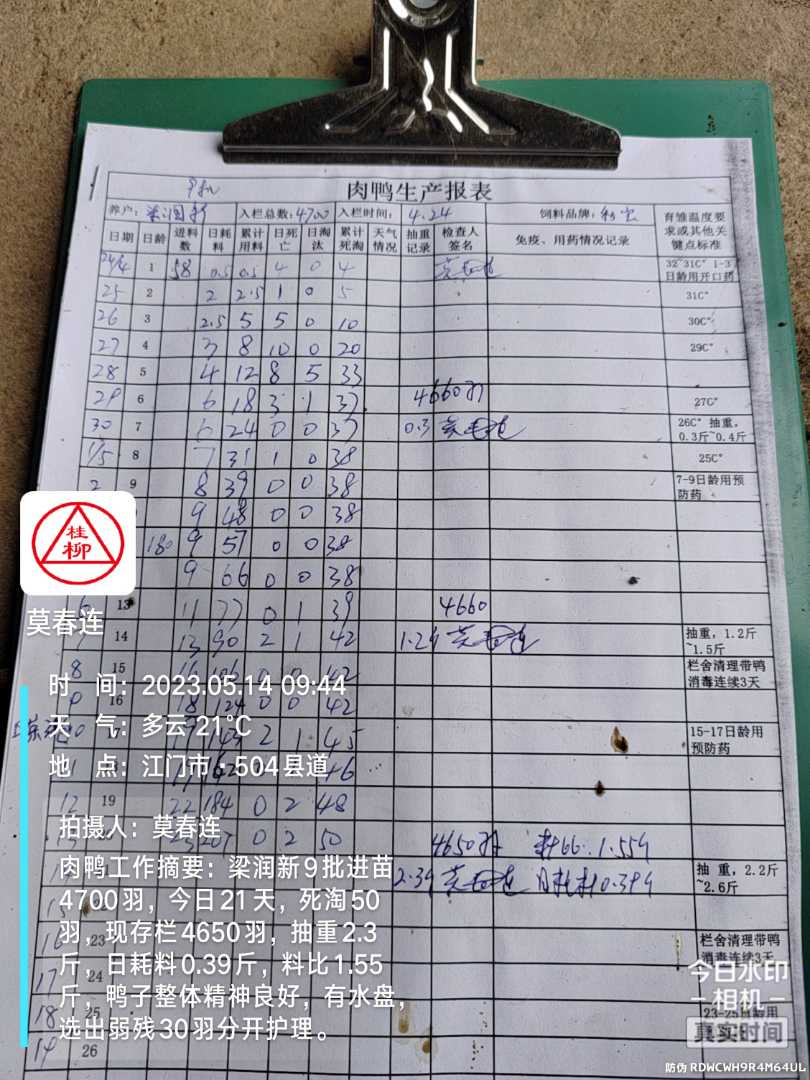 肉鸭生产报表
养户: 梁润新 入栏总数: 4700 入栏时间: 4.24 饲料品牌: 育雏温度要求或其他关键点标准
日期 日龄 进料数 日耗料 累计用料 日死亡 日淘汰 累计死淘 天气情况 抽重记录 检查人签名 免疫、用药情况记录
24/4 1 58 0.5 0.5 4 0 4 32~31C° 1-3日龄用开口药
25 2 2 2.5 1 0 5 31C°
26 3 2.5 5 5 0 10 30C°
27 4 3 8 10 0 20 29C°
28 5 4 12 8 5 33
29 6 6 18 3 1 37 4660羽 27C°
30 7 6 24 0 0 37 0.3 莫春连 26C° 抽重，0.3斤~0.4斤
1/5 8 7 31 1 0 38 25C°
2 9 8 39 0 0 38 7-9日龄用预防药
9 48 0 0 38
180 9 57 0 0 38
9 66 0 0 38
6 13 11 77 0 1 39 4660
14 13 90 2 1 42 1.2斤 莫春连 抽重，1.2斤~1.5斤
8 15 16 106 0 0 42 栏舍清理带鸭消毒连续3天
9 16 18 124 0 0 42
2 1 45 15-17日龄用预防药
46
12 19 22 184 0 2 48
207 0 2 50 4650羽 料比: 1.55斤
2.3斤 莫春连 日耗料0.39斤 抽重，2.2斤~2.6斤
15
16 23 栏舍清理带鸭消毒连续3天
17 24
18 25 23-25日龄用
19 26
桂柳
莫春连
时 间: 2023.05.14 09:44
天 气: 多云 21℃
地 点: 江门市·504县道
拍摄人: 莫春连
肉鸭工作摘要: 梁润新9批进苗
4700羽，今日21天，死淘50
羽，现存栏4650羽，抽重2.3
斤，日耗料0.39斤，料比1.55
斤，鸭子整体精神良好，有水盘，
选出弱残30羽分开护理。
今日水印
相机
真实时间
防伪 RDWCWH9R4M64UL